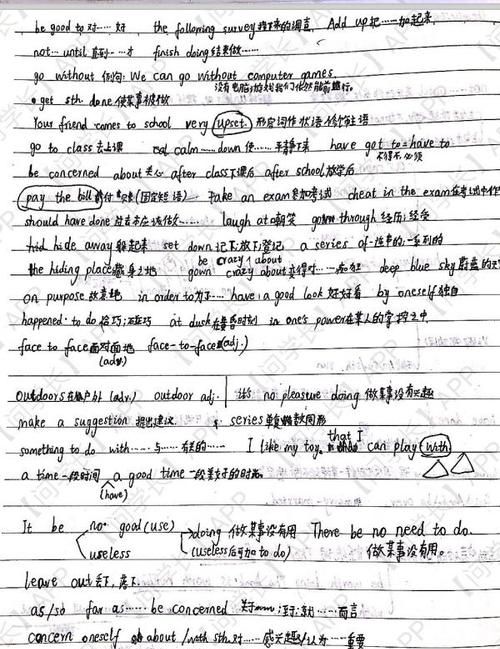 be good to 对……好 the following survey 接下来的调查 Add up 把……加起来
not…until 直到……才 finish doing 结束做……
go without 例句: We can go without computer games.
没有电脑游戏我们依然能前行。
get sth. done 使某事被做
Your friend comes to school very upset. 形容词作状语修饰主语
go to class 去上课 calm…down 使……平静下来 have got to = have to
不得不、必须
be concerned about 关心 after class 下课后 after school 放学后
pay the bill 付 (固定短语) take an exam 参加考试 cheat in the exam 在考试中作
should have done 过去本应该做…… laugh at 嘲笑 through 经历; 经受
hide away 躲起来 set down 记下; 放下; 登记 a series of 一连串的; 一系列的
be crazy about
the hiding place 藏身之地 grow crazy about 变得对……痴狂 deep blue sky 蔚蓝的天
on purpose 故意地 in order to 为了… have a good look 好好看 by oneself 独自
happened to do 恰巧; 碰巧 at dusk 在黄昏时刻 in one's power 在某人的掌控之中
face to face 面对面地 face-to-face (adj.)
(adv.)
outdoors 在户外 (adv.) outdoor adj. it's no pleasure doing 做某事没有乐趣
make a suggestion 提出建议 series 单复数同形
something to do with……与……有关的… I like my toy that I can play with
a time 一段时间 a good time 一段美好的时光
(have)
It be no good (use) doing 做某事没有用 There be no need to do.
useless (useless后可加 to do) 做某事没有用。
leave out 丢下, 落下
as/so far as…… be concerned 关于……; 就……而言
concern oneself about/with sth. 对……感兴趣/认为……重要